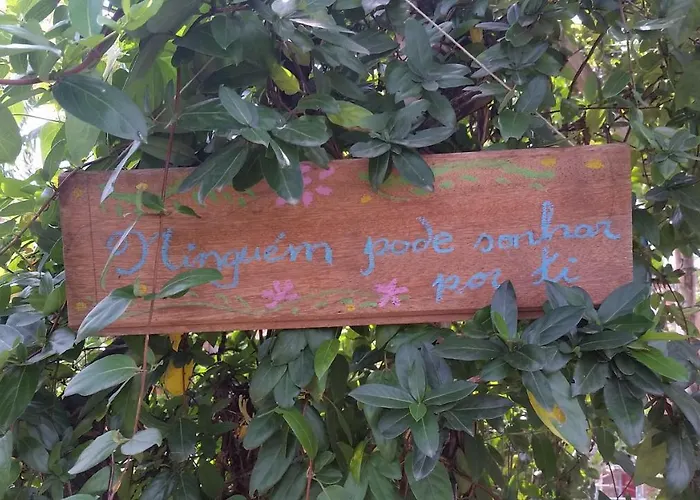 Ninguém pode sonhar
por ti